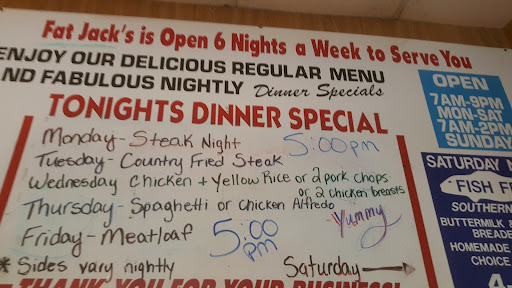 Fat Jack's is Open 6 Nights a Week to Serve You
ENJOY OUR DELICIOUS REGULAR MENU
ND FABULOUS NIGHTLY Dinner Specials
TONIGHTS DINNER SPECIAL
Monday - Steak Night 5:00pm
Tuesday - Country Fried Steak
Wednesday Chicken + Yellow Rice or 2 pork chops
or 2 chicken breasts
Thursday - Spaghetti or Chicken Alfredo
Yummy
Friday - Meatloaf 5:00
pm
* Sides vary nightly Saturday
THANK YOU FOR YOUR BUSINESS!
OPEN
7AM-9PM
MON-SAT
7AM-2PM
SUNDAY
SATURDAY N
FISH FR
SOUTHERN
BUTTERMILK &
BREADE
HOMEMADE
CHOICE